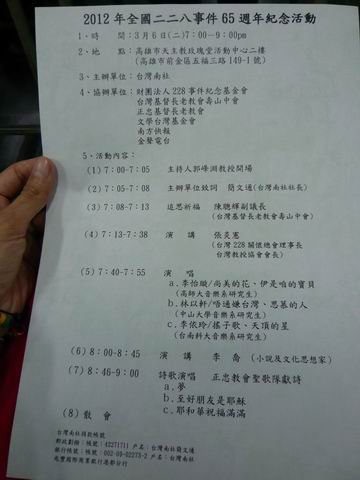 2012年全國二二八事件65週年紀念活動
1、時　間:3月6(二)7:00~9:00pm
2、地　點:高雄市天主教玫瑰堂活動中心二樓
(高雄市前金區五福三路149-1號)
3、主辦單位:台灣南社
4、協辦單位:財團法人228事件紀念基金會
台灣基督長老教會壽山中會
正忠基督長老教會
文學台灣基金會
南方快報
金聲電台
5、活動內容:
(1)7:00-7:05　主持人郭峰淵教授開場
(2)7:05-7:08　主辦單位致詞　簡文通(台灣南社社長)
(3)7:08-7:13　追思祈福　陳聰輝副議長
(台灣基督長老教會壽山中會)
(4)7:13-7:38　演　講　張炎憲
(台灣228關懷總會理事長
台灣教授協會會長)
(5)7:40-7:55　演　唱
a.李怡璇/尚美的花、伊是咱的寶貝
(高師大音樂系研究生)
b.林以軒/唔通嫌台灣、思慕的人
(中山大學音樂系研究生)
c.李依玲/搖子歌、天頂的星
(台南科大音樂系研究生)
(6)8:00-8:45　演　講　李　喬　(小說及文化思想家)
(7)8:46-9:00　詩歌演唱　正忠教會聖歌隊獻詩
a.夢
b.至好朋友是耶穌
c.耶和華祝福滿滿
(8)散　會
台灣南社捐款帳號
郵政劃撥:帳號:42271711 戶名:台灣南社簡文通
銀行帳號:帳號:002-09-02273-2 戶名:台灣南社
兆豐國際商業銀行港都分行